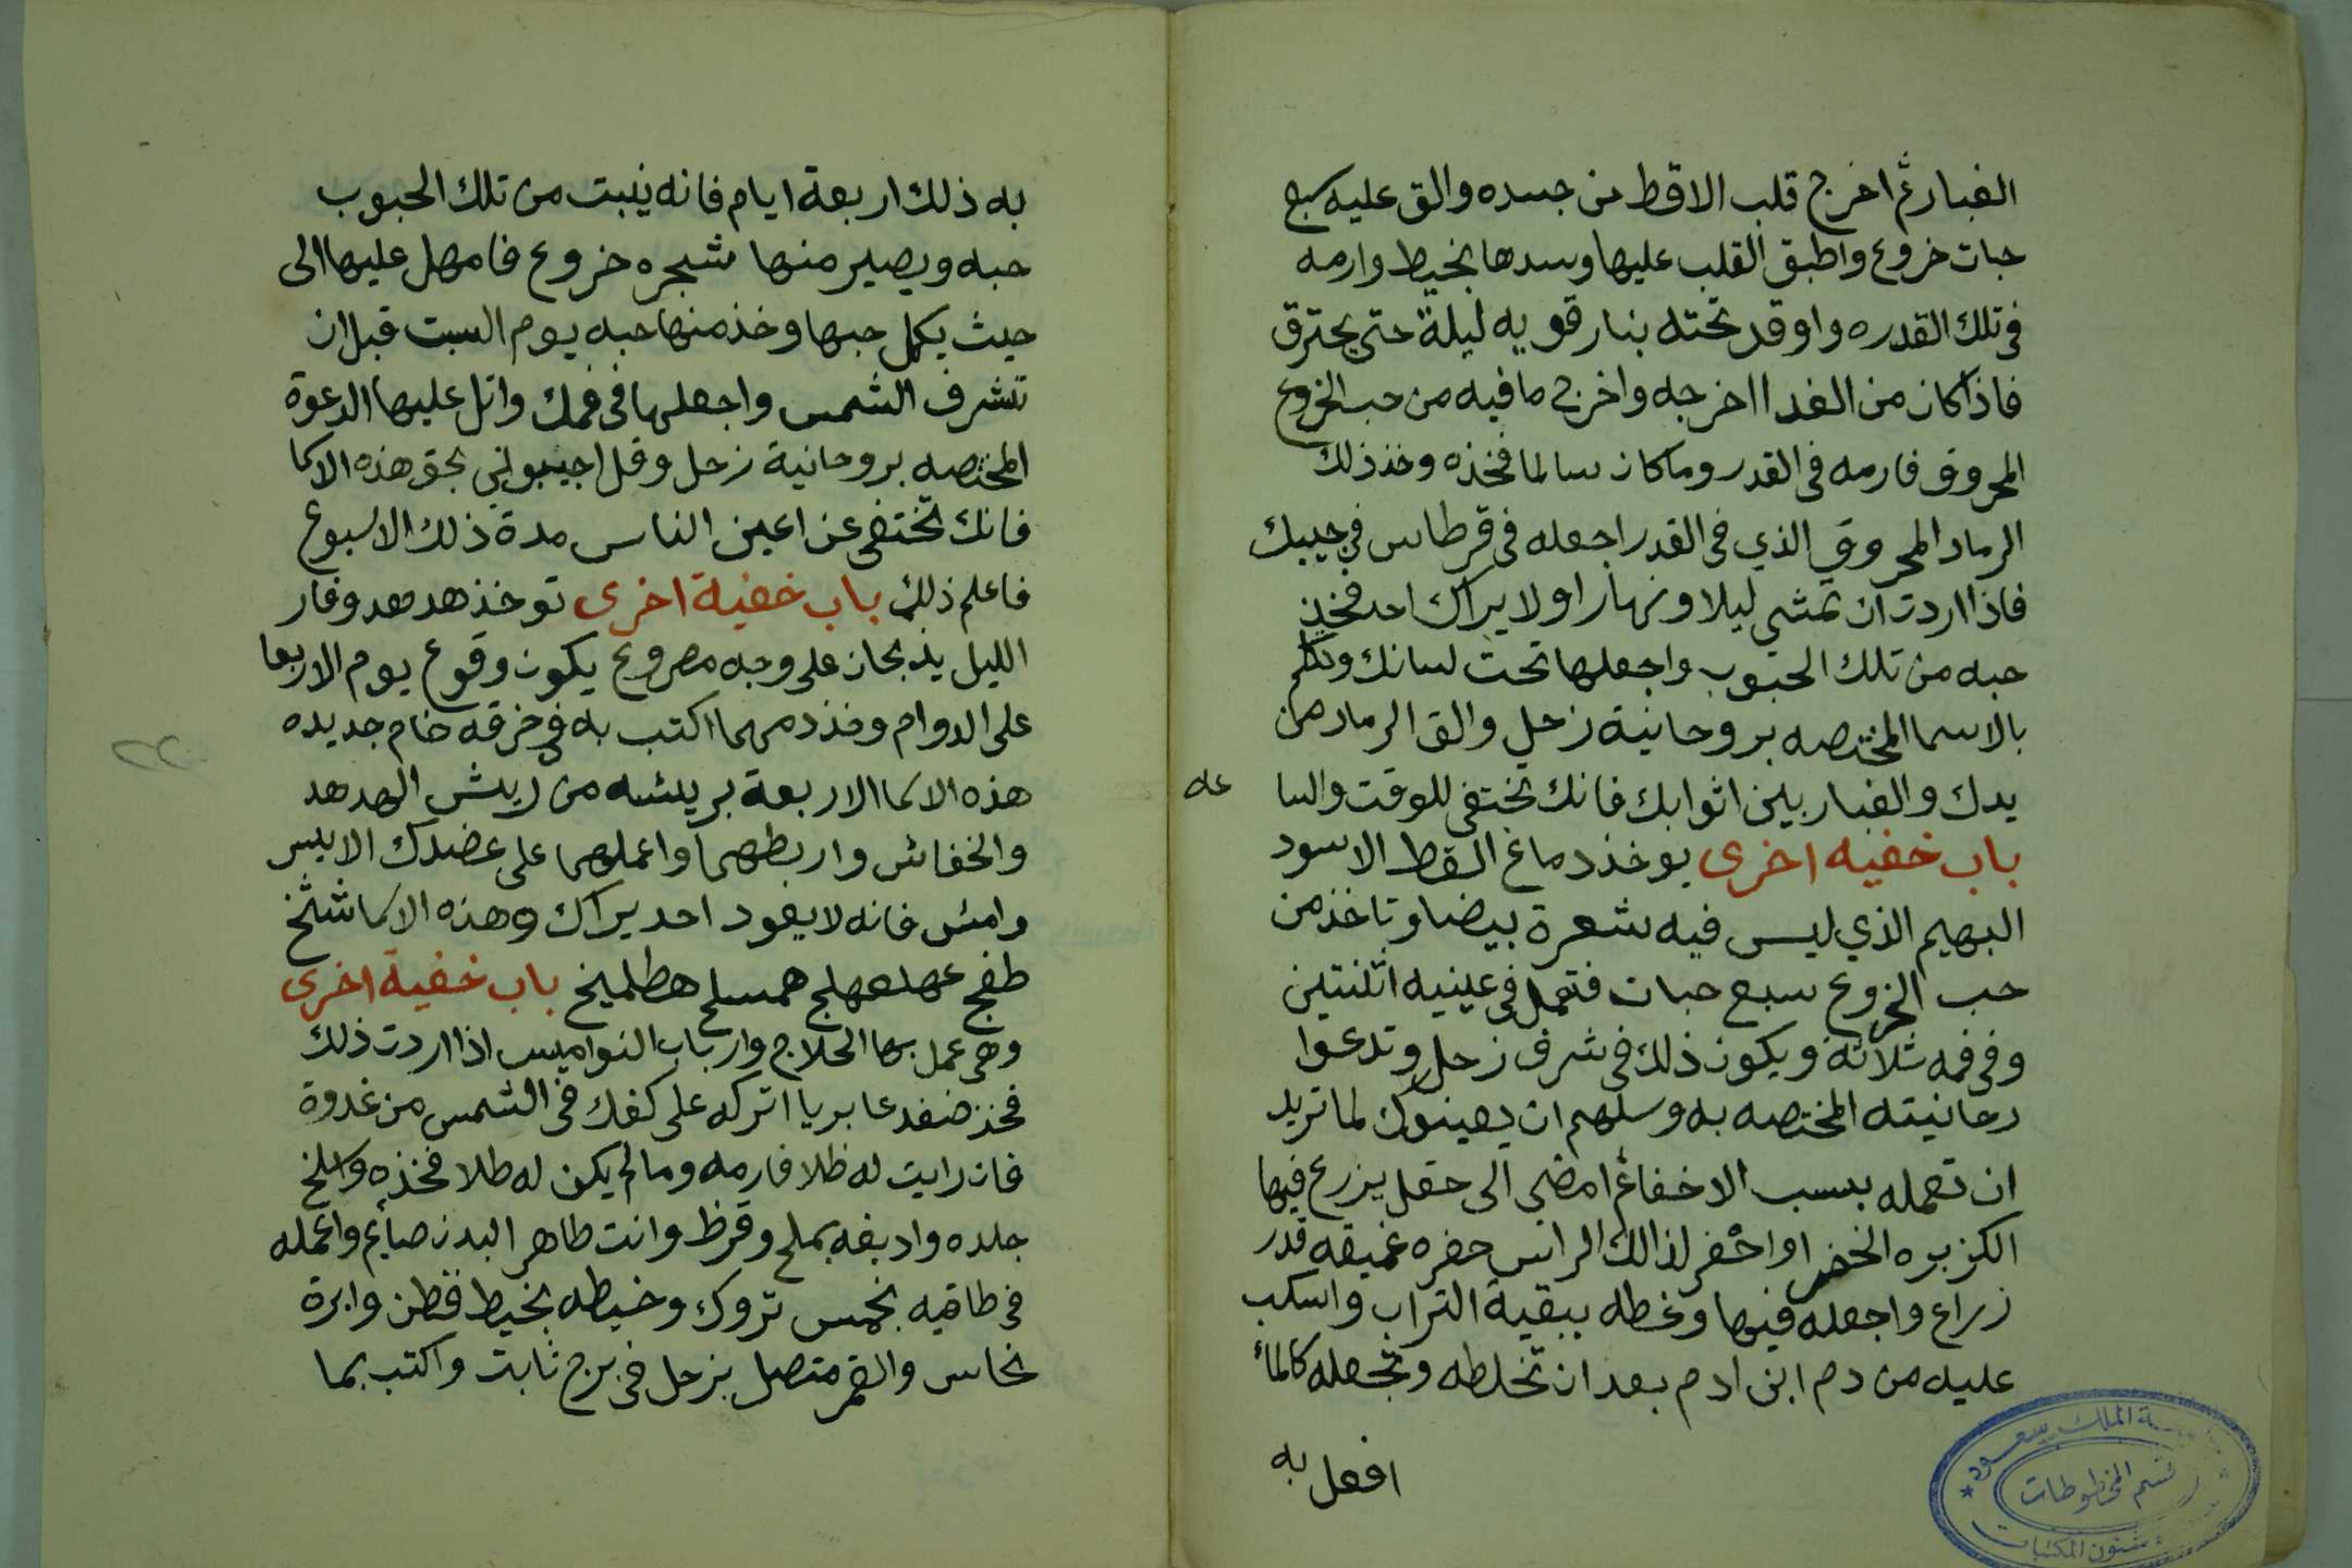 الغبار ثم اخرج قلب الاقط من جسده والق عليه سبع
حبات خروع واطبق القلب عليها وسدها بخيط وارمه
في تلك القدره واوقد تحته بنار قويه ليلة حتى يحترق
فاذا كان من الغد ااخرجه واخرج ما فيه من حب الخروع
المحروق فارمه في القدر وما كان سالما فخذه وخذ ذلك
الرماد المحروق الذي في القدر اجعله في قرطاس في جيبك
فاذا اردت ان تمشي ليلا ونهارا ولا يراك احد فخذ
حبه من تلك الحبوب واجعلها تحت لسانك وتكلم
بالاسما المختصه بروحانية زحل والق الرماد من
يدك والغبار بين اثوابك فانك تختفي للوقت والسا عه
باب خفيه اخرى يوخذ دماغ القط الاسود
البهيم الذي ليس فيه شعرة بيضا وتاخذ من
حب الخروع سبع حبات فتجعل في عينيه اثنتين
وفي فمه ثلاثة ويكون ذلك في شرف زحل وتدعوا
رحانيته المختصه به وسلهم ان يعينوك لما تريد
ان تعمله بسبب الاخفا ثم امضي الى حقل يزرع فيها
الكزبره الخضرا واحفر لذالك الراس حفره غميقه قدر
زراع واجعله فيها وغطه ببقية التراب واسكب
عليه من دم ابن ادم بعد ان تخلطه وتجعله كالماء
افعل به
به ذلك اربعة ايام فانه ينبت من تلك الحبوب
حبه ويصير منها شجره خروع فامهل عليها الى
حيث يكمل حبها وخذ منها حبه يوم السبت قبل ان
تشرف الشمس واجعلها في فمك واتل عليها الدعوة
المختصه بروحانية زحل وقل اجيبوني بحق هذه الاسما
فانك تختفي عن اعين الناس مدة ذلك الاسبوع
فاعلم ذلك باب خفية اخرى توخذ هدهد وفار
الليل يذبحان على وجه مصروع يكون وقوع يوم الاربعا
على الدوام وخذ دمهما اكتب به في خرقه خام جديده
هذه الاسما الاربعة بريشه من ريش الهدهد
والخفاش واربطهما واعملهما على عضدك الايسر
وامش فانه لا يعود احد يراك وهذه الاسما شخ
طفج عهلعهلج همسلح هطلميخ باب خفية اخرى
وهي عمل بها الحلاج وارباب النواميس اذا اردت ذلك
فخذ ضفدعا بريا اتركه على كفك في الشمس من غدوة
فان رايت له ظلا فارمه وما لم يكن له ظلا فخذه واسلخ
جلده وادبغه بملح وقرظ وانت طاهر البدن صايم واعمله
في طاقيه بخمس تروك وخيطه بخيط قطن وابرة
نحاس والقمر متصل بزحل في برج ثابت واكتب بما
جامعة الملك سعود
قسم المخطوطات
شئون المكتبات